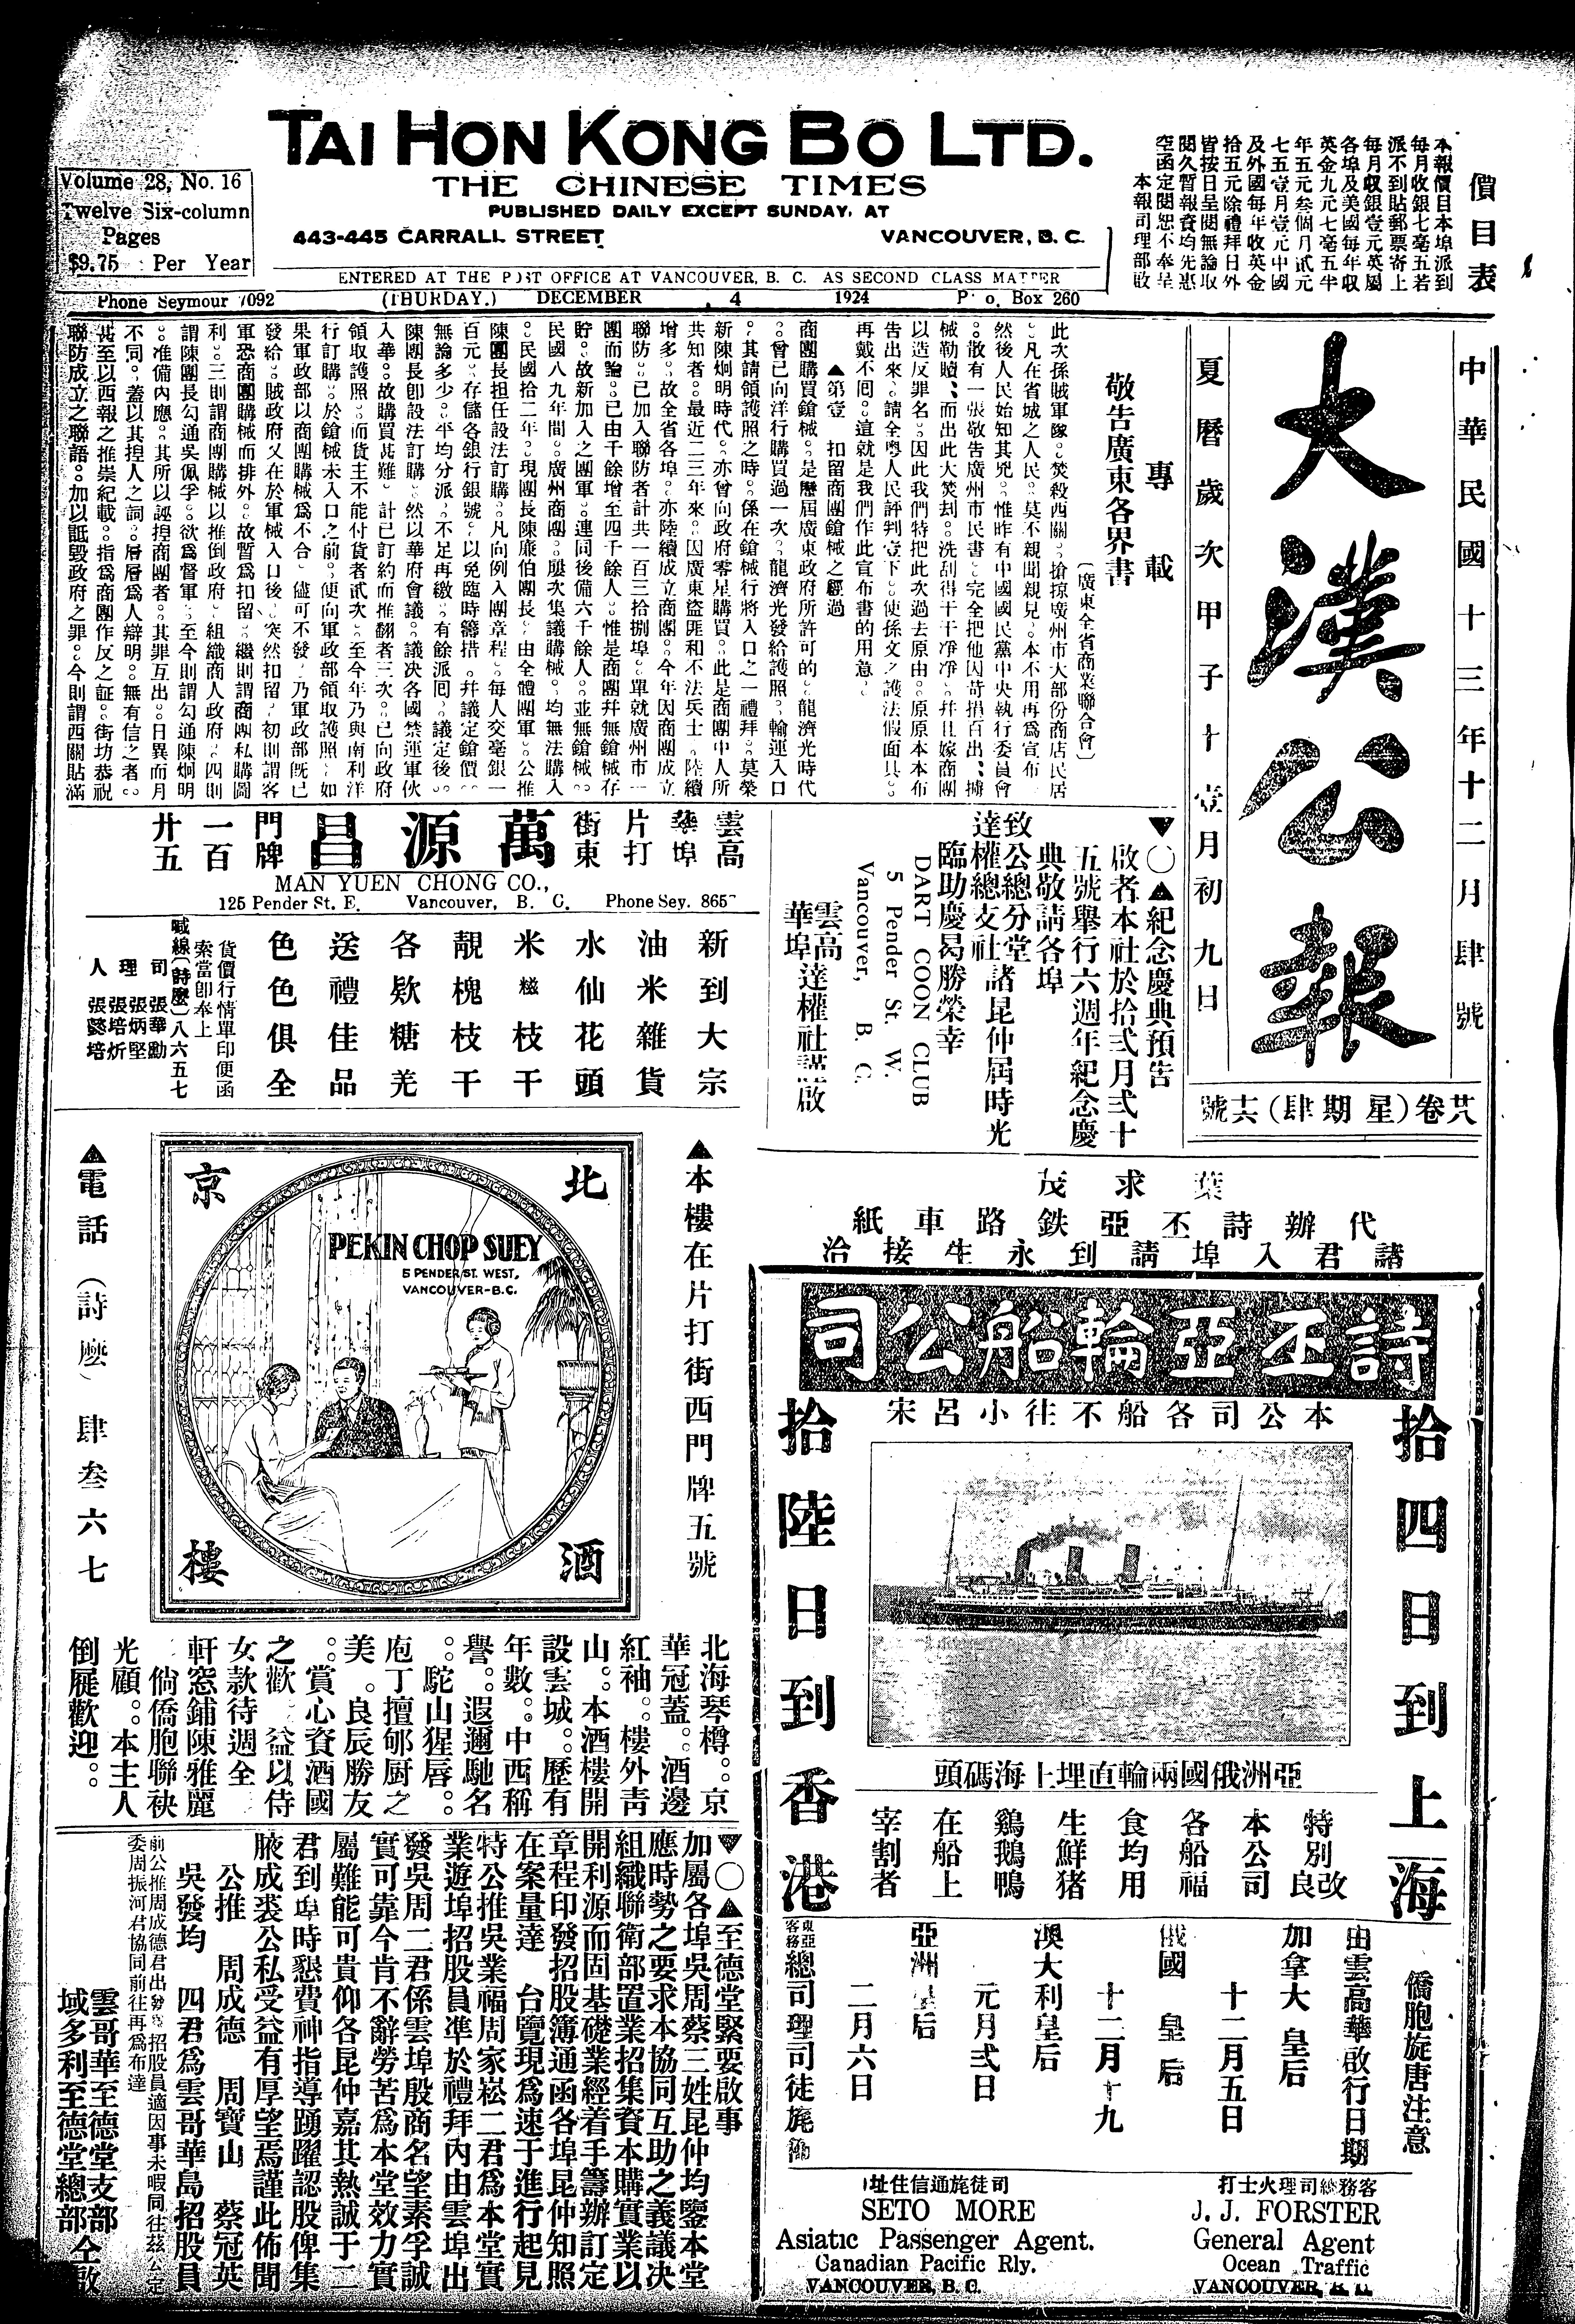 TAI HON KONG BO LTD.
THE CHINESE TIMES
PUBLISHED DAILY EXCEPT SUNDAY, AT
443-445 CARRALL STREET VANCOUVER, B. C.
ENTERED AT THE POST OFFICE AT VANCOUVER, B. C. AS SECOND CLASS MATTER
Volume 28, No. 16
Twelve Six-column
Pages
$9.75 Per Year
Phone Seymour 7092 (THURDAY.) DECEMBER 4 1924 P. o. Box 260
價目表
本報價目本埠派到
每月收銀七毫五若
派不到貼郵票寄上
每月収銀壹元英屬
各埠及美國每年収
英金九元七毫五半
年五元叁個月貳元
七五壹月壹元中國
及外國每年收英金
拾五元除禮拜日外
皆按日呈閱無論取
閱久暫報資均先惠
空函定閱恕不奉呈
本報司理部啟
中華民國十三年十二月肆號
大漢公報
夏曆歲次甲子十壹月初九日
廿八卷(星期肆)十六號
專載
敬告廣東各界書
(廣東全省商業聯合會)
此次孫賊軍隊。焚殺西關。搶掠廣州市大部份商店民居
。凡在省城之人民。莫不親聞親見。本不用再爲宣布
然後人民始知其兇。惟昨有中國國民黨中央執行委員會
。散有一張敬告廣州市民書。完全把他因苛捐百出。擄
械勒贖。而出此大焚刦。洗刮得干干凈凈。幷且嫁商團
以造反罪名。因此我們特把此次過去原由。原原本本布
告出來。請全粤人民評判壹下。使孫文之護法假面具。
再戴不囘。這就是我們作此宣布書的用意。
▲第壹 扣留商團鎗械之經過
商團購買鎗械。是歷屆廣東政府所許可的。龍濟光時代
。曾已向洋行購買過一次。龍濟光發給護照。輸運入口
。其請領護照之時。係在鎗械行將入口之一禮拜。莫榮
新陳炯明時代。亦曾向政府零星購買。此是商團中人所
共知者。最近二三年來。因廣東盜匪和不法兵士。陸續
增多。故全省各埠。亦陸續成立商團。今年因商團成立
聯防。已加入聯防者計共一百三拾捌埠。單就廣州市一
團而論。已由千餘增至四千餘人。惟是商團幷無鎗械存
貯。故新加入之團軍。連同後備六千餘人。並無鎗械。
民國八九年間。廣州商團。屢次集議購械。均無法購入
。民國拾二年。現團長陳廉伯團長。由全體團軍。公推
陳團長担任設法訂購。凡向例入團章程。每人交毫銀一
百元。存儲各銀行銀號。以免臨時籌措。幷議定鎗價。
無論多少。平均分派。不足再繳。有餘派囘。議定後。
陳團長卽設法訂購。然以華府會議。議决各國禁運軍伙
入華。故購買甚難。計已訂約而推翻者三次。已向政府
領取護照。而貨主不能付貨者貳次。至今年乃與南利洋
行訂購。於鎗械未入口之前。便向軍政部領取護照。如
果軍政部以商團購械爲不合。儘可不發。乃軍政部旣已
發給。賊政府又在於軍械入口後。突然扣留。初則謂客
軍恐商團購械而排外。故暫爲扣留。繼則謂商團私購圖
利。三則謂商團購械以推倒政府。組織商人政府。四則
謂陳團長勾通吳佩孚。欲爲督軍。至今則謂勾通陳炯明
。准備內應。其所以誣捏商團者。其罪互出。日異而月
不同。蓋以其捏人之詞。層層爲人辯明。無有信之者。
甚至以西報之推崇紀載。指爲商團作反之証。街坊恭祝
聯防成立之聯語。加以詆毀政府之罪。今則謂西關貼滿
雲高華埠片打街東萬源昌門牌一百廿五
MAN YUEN CHONG CO.,
125 Pender St. E. Vancouver, B. C. Phone Sey. 865
新到大宗
油米雜貨
水仙花頭
米糍枝干
靚槐枝干
各欵糖羌
送禮佳品
色色俱全
貨價行情單印便函
索當卽奉上
喊線(詩麼)八六五七
司理人
張華勳
張炳堅
張培炘
張懿培
▼○▲紀念慶典預告
啟者本社於拾弍月弍十
五號舉行六週年紀念慶
典敬請各埠
致公總分堂
達權總支社諸昆仲屆時光
臨助慶曷勝榮幸
DART COON CLUB
5 Pender St. W.
Vancouver, B. C.
雲高華埠達權社謹啟
葉求茂
代辦詩丕亞鉄路車紙
諸君入埠請到永生接洽
▲本樓在片打街西門牌五號
北京酒樓
PEKIN CHOP SUEY
5 PENDER ST. WEST,
VANCOUVER-B.C.
▲電話(詩麼)肆叁六七
北海琴樽。京
華冠蓋。酒邊
紅袖。樓外靑
山。本酒樓開
設雲城。歷有
年數。中西稱
譽。遐邇馳名
。駝山猩唇。
庖丁擅郇厨之
美。良辰勝友
。賞心資酒國
之歡。益以侍
女款待週全
軒窓鋪陳雅麗
倘僑胞聯袂
光顧。本主人
倒屣歡迎。
詩丕亞輪船公司
本公司各船不往小呂宋
拾四日到上海
拾陸日到香港
亞洲俄國兩輪直埋上海碼頭
特別改良
本公司
各船福
食均用
生鮮猪
鷄鵝鴨
在船上
宰割者
僑胞旋唐注意
由雲高華啟行日期
加拿大皇后 十二月五日
俄國皇后 十二月十九
澳大利皇后 元月弍日
亞洲皇后 二月六日
東亞客務總司理司徒旄
客務總司理火士打
J. J. FORSTER
General Agent
Ocean Traffic
VANCOUVER, B. C.
司徒旄通信住址
SETO MORE
Asiatic Passenger Agent.
Canadian Pacific Rly.
VANCOUVER, B. C.
▼○▲至德堂緊要啟事
加屬各埠吳周蔡三姓昆仲均鑒本堂
應時勢之要求本協同互助之義議决
組織聯衛部置業招集資本購實業以
開利源而固基礎業經着手籌辦訂定
章程印發招股簿通函各埠昆仲知照
在案量達 台覽現爲速于進行起見
特公推吳業福周家崧二君爲本堂實
業遊埠招股員凖於禮拜內由雲埠出
發吳周二君係雲埠殷商名望素孚誠
實可靠今肯不辭勞苦爲本堂效力實
屬難能可貴仰各昆仲嘉其熱誠于二
君到埠時懇費神指導踴躍認股俾集
腋成裘公私受益有厚望焉謹此佈聞
公推 周成德 周寶山 蔡冠英
吳發均 四君爲雲哥華島招股員
前公推周成德君出發招股員適因事未暇同往茲公定
委周振河君協同前往再爲布達
雲哥華至德堂支部
域多利至德堂總部 仝啟